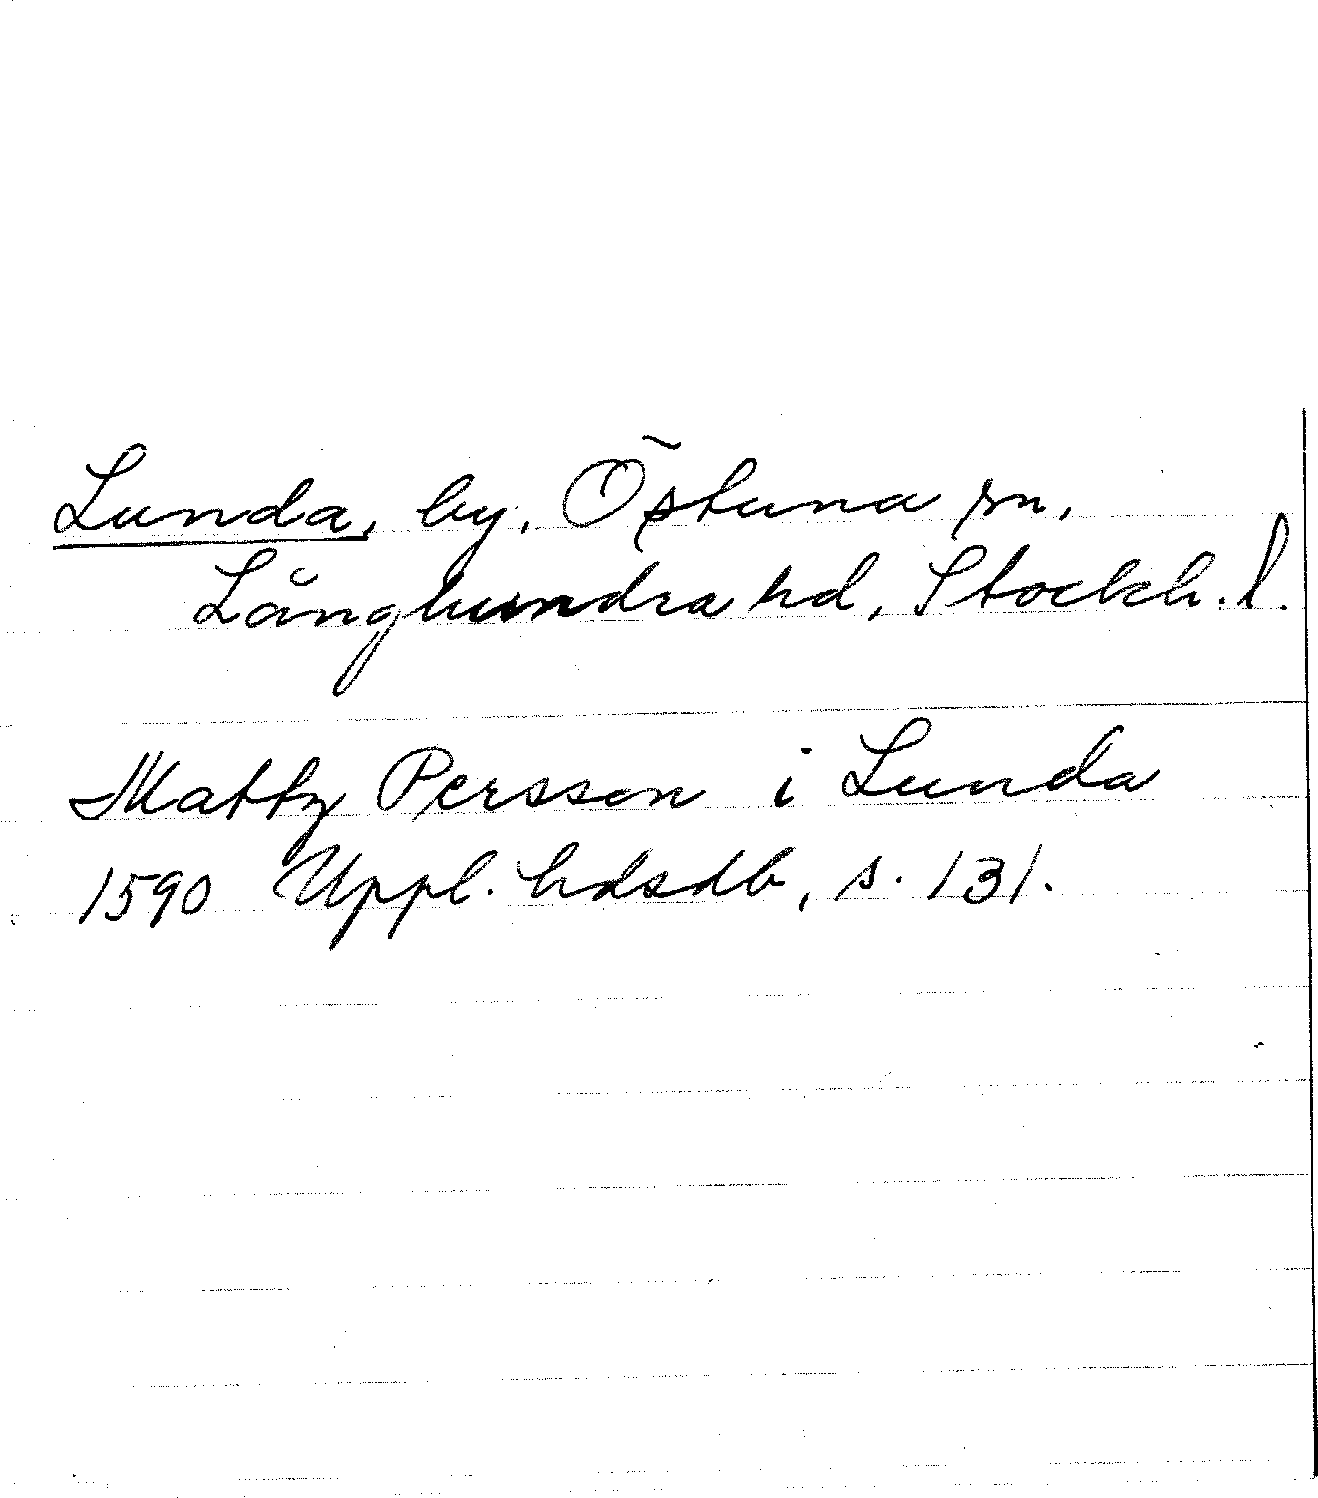 Lunda, by, Östuna sn,
Långhundra hd, Stockh. l.
Mattz Persson i Lunda
1590 Uppl. hdsdb, s. 131.